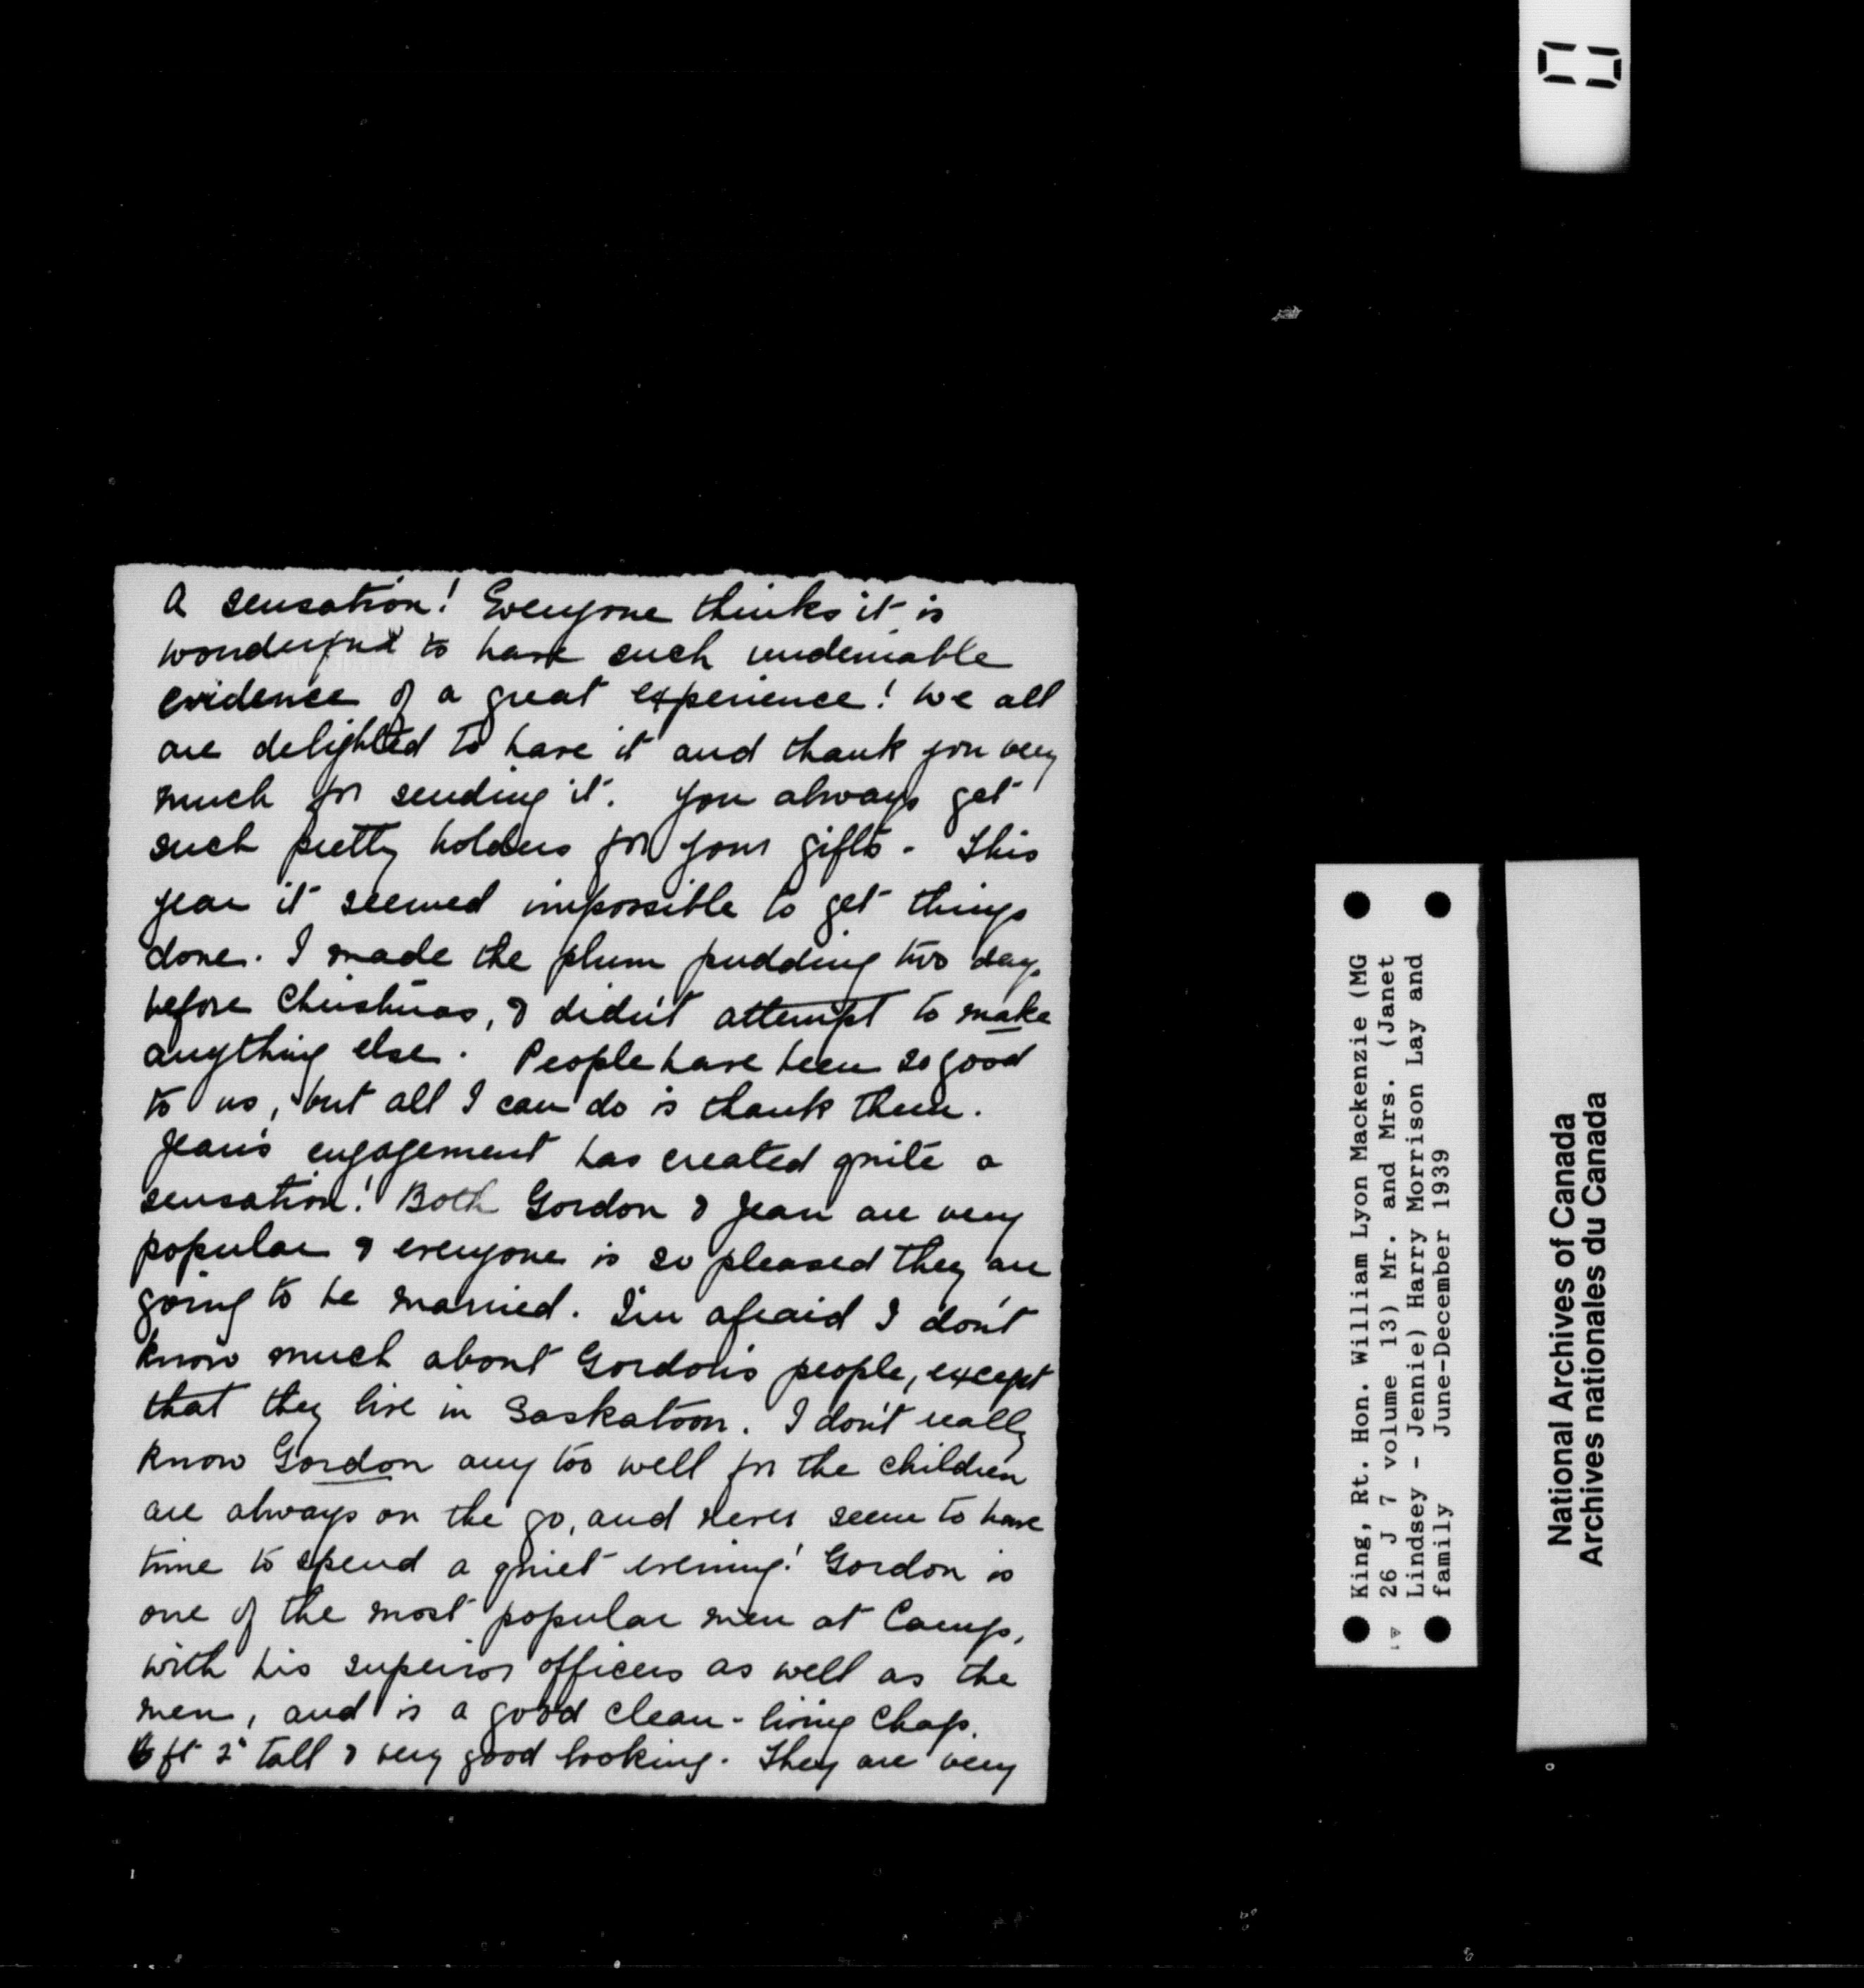 a sensation! Everyone thinks it is
wonderful to have such undeniable
evidence of a great experience! We all
are delighted to have it and thank you very
much for sending it. You always get
such pretty holders for your gifts. This
year it seemed impossible to get things
done. I made the plum pudding two days
before Christmas, & didn't attempt to make
anything else. People have been so good
to us, but all I can do is thank them.
Jean's engagement has created quite a
sensation! Both Gordon & Jean are very
popular & everyone is so pleased they are
going to be married. I'm afraid I don't
know much about Gordon's people, except
that they live in Saskatoon. I don't really
know Gordon any too well for the children
are always on the go, and never seem to have
time to spend a quiet evening! Gordon is
one of the most popular men at Camp,
with his superior officers as well as the
men, and is a good clean-living chap.
6 ft 2" tall & very good looking. They are very
King, Rt. Hon. William Lyon Mackenzie (MG
26 J 7 volume 13) Mr. and Mrs. (Janet
Lindsey - Jennie) Harry Morrison Lay and
family June-December 1939
National Archives of Canada
Archives nationales du Canada